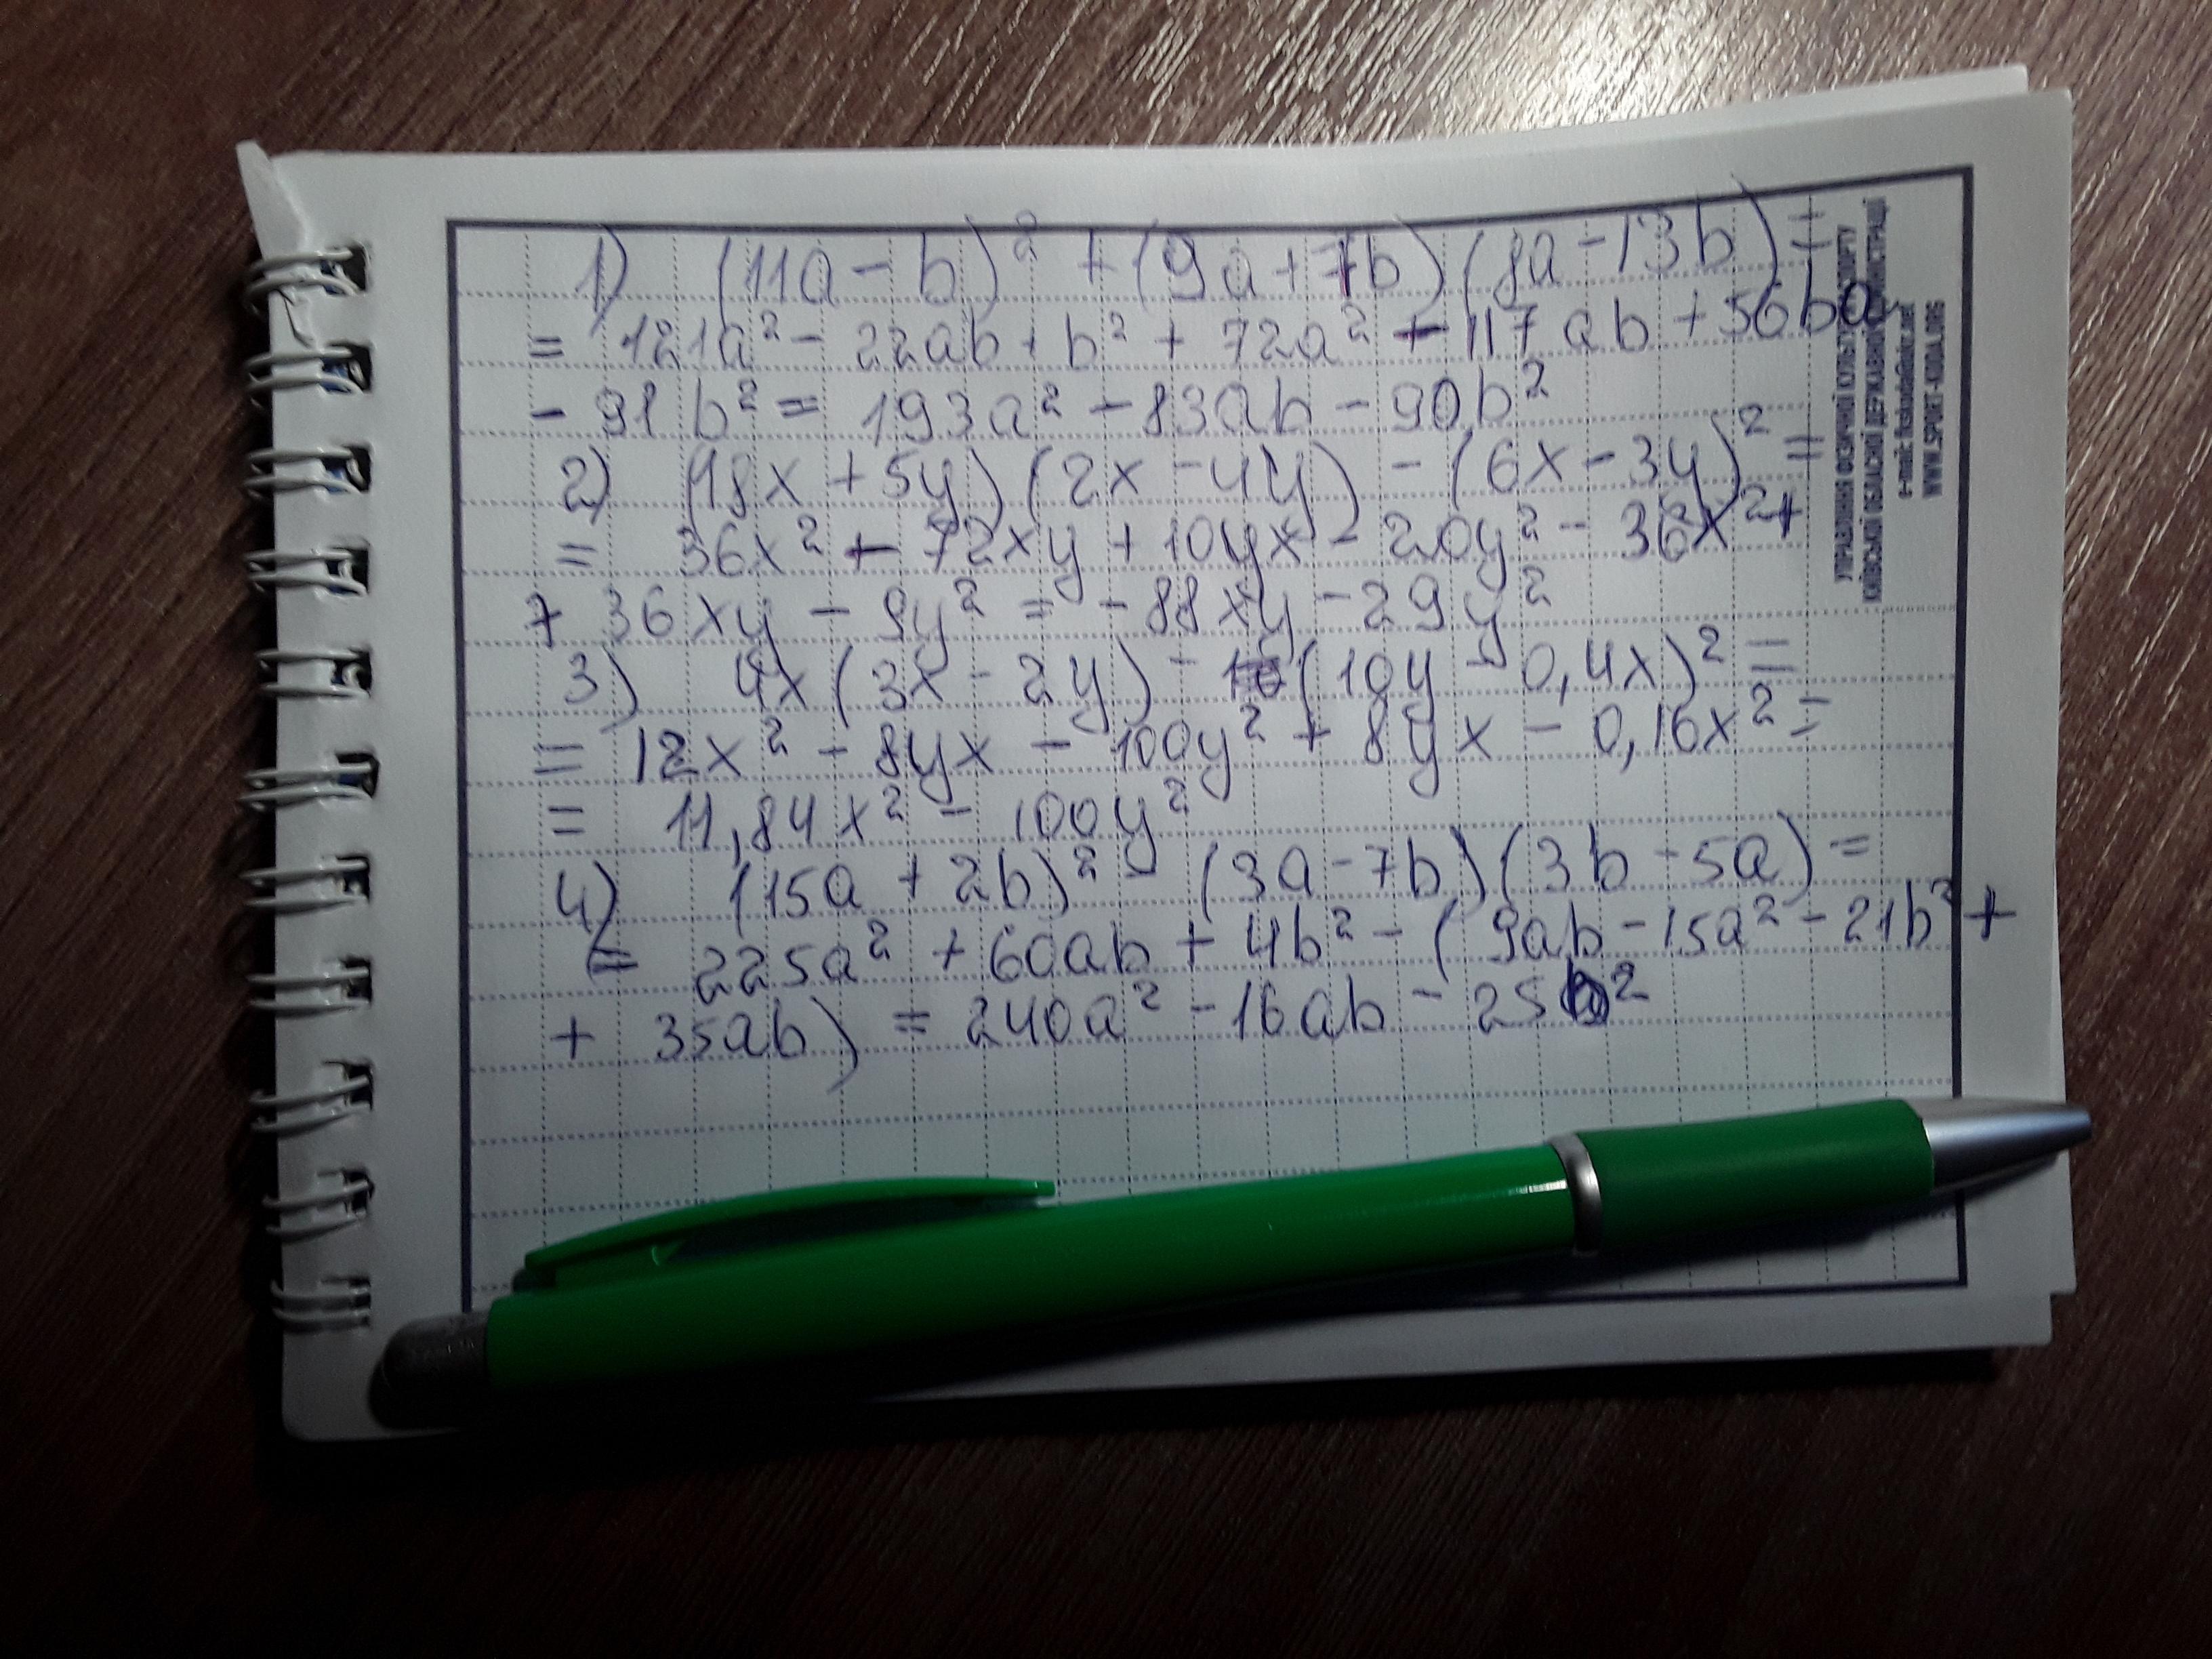 1) (11a - b)² + (9a + 7b)(8a - 13b) =
= 121a² - 22ab + b² + 72a² - 117ab + 56ba
- 91b² = 193a² - 83ab - 90b²
2) (18x + 5y)(2x - 4y) - (6x - 3y)² =
= 36x² - 72xy + 10yx - 20y² - 36x² +
+ 36xy - 9y² = -88xy - 29y²
3) 4x(3x - 2y) - (10y - 0,4x)² =
= 12x² - 8yx - 100y² + 8yx - 0,16x² =
= 11,84x² - 100y²
4) (15a + 2b)² - (3a - 7b)(3b - 5a) =
= 225a² + 60ab + 4b² - (9ab - 15a² - 21b² +
+ 35ab) = 240a² - 16ab - 25b²
УПРАВЛІННЯ ФІЗИЧНОЇ КУЛЬТУРИ І СПОРТУ
КИЇВСЬКОЇ ОБЛАСНОЇ ДЕРЖАВНОЇ АДМІНІСТРАЦІЇ
WWW.SPORT-KODA.ORG